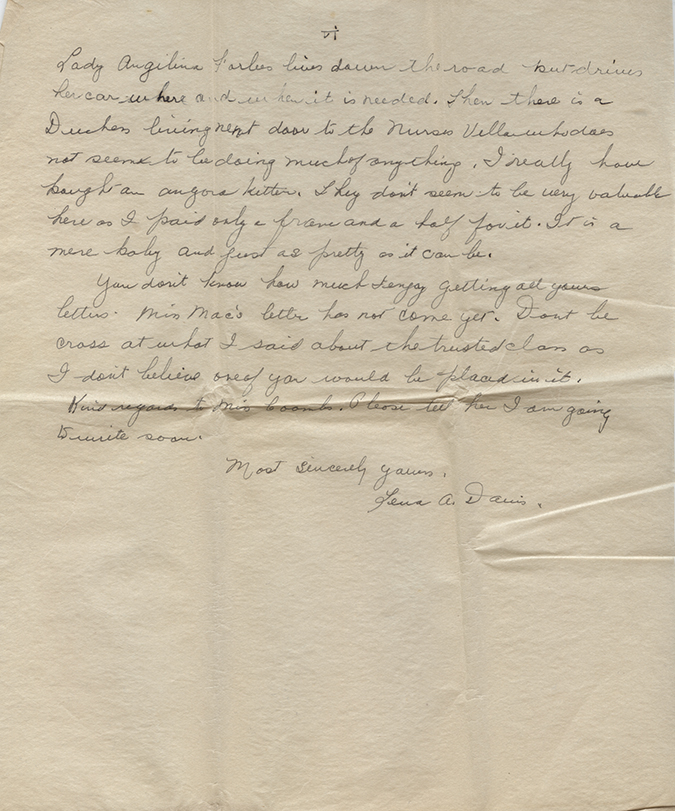 vi
Lady Angilina Forbes lives down the road but drives
her car where and when it is needed. Then there is a
Duchess living next door to the Nurses Villa who does
not seem to be doing much of anything. I really have
bought an angora kitten. They don't seem to be very valuable
here as I paid only a franc and a half for it. It is a
mere baby and just as pretty as it can be.
You don't know how much I enjoy getting all yours
letters. Miss Mac's letter has not come yet. Dont be
cross at what I said about the trusted class as
I don't believe one of you would be placed in it.
Kind regards to Miss Coombs. Please tell her I am going
to write soon.
Most Sincerely yours,
Lena A. Davis.